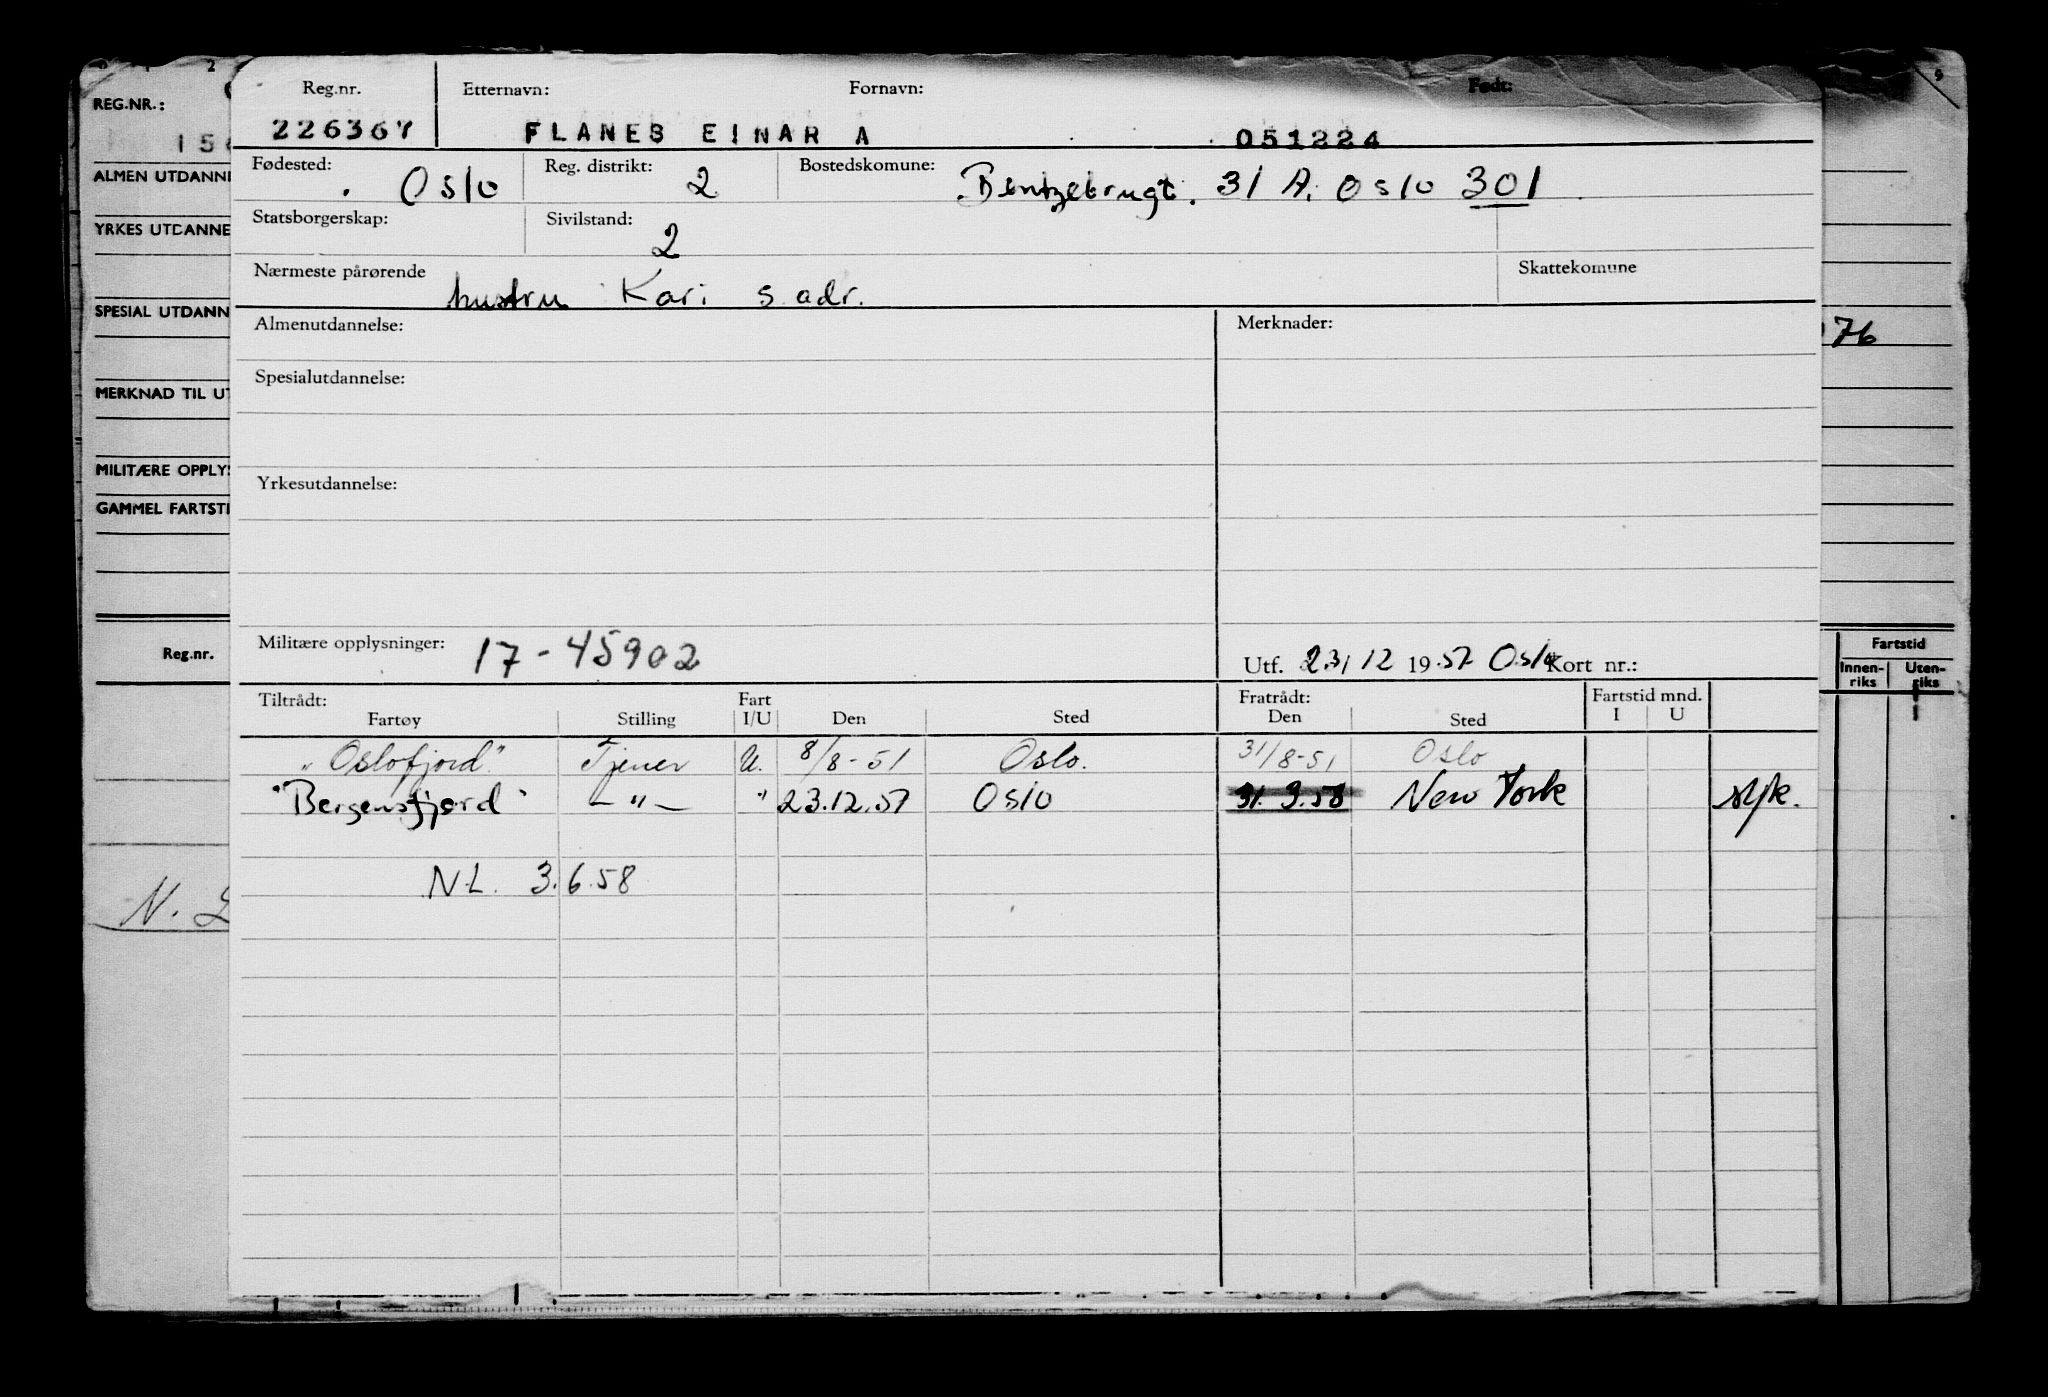 Reg.nr. Etternavn: Fornavn: Født:
226367 FLANES EINAR A 051224
Fødested: Oslo Reg. distrikt: 2 Bostedskomune: Bentzebrugt. 31 A. Oslo 301
Statsborgerskap: Sivilstand: 2
Nærmeste pårørende hustru Kari s. adr. Skattekomune
Almenutdannelse: Merknader:
Spesialutdannelse:
Yrkesutdannelse:
Militære opplysninger: 17-45902 Utf. 23/12 1957 Oslo Kort nr.:
Tiltrådt: Fart Fratrådt: Fartstid mnd.
Fartøy Stilling I/U Den Sted Den Sted I U
"Oslofjord" Tjener U. 8/8-51 Oslo. 31/8-51 Oslo
"Bergensfjord" —"— " 23.12.57 Oslo 31.3.58 New York syk.
N.L. 3.6.58
2
9
REG.NR.:
15
ALMEN UTDANNE
YRKES UTDANNE
SPESIAL UTDANN
76
MERKNAD TIL UT
MILITÆRE OPPLYS
GAMMEL FARTSTI
Reg.nr. Fartstid
Innen-riks Uten-riks
N.